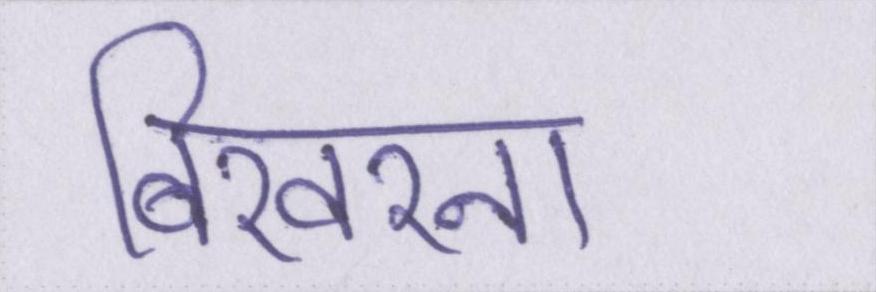 बिखरना